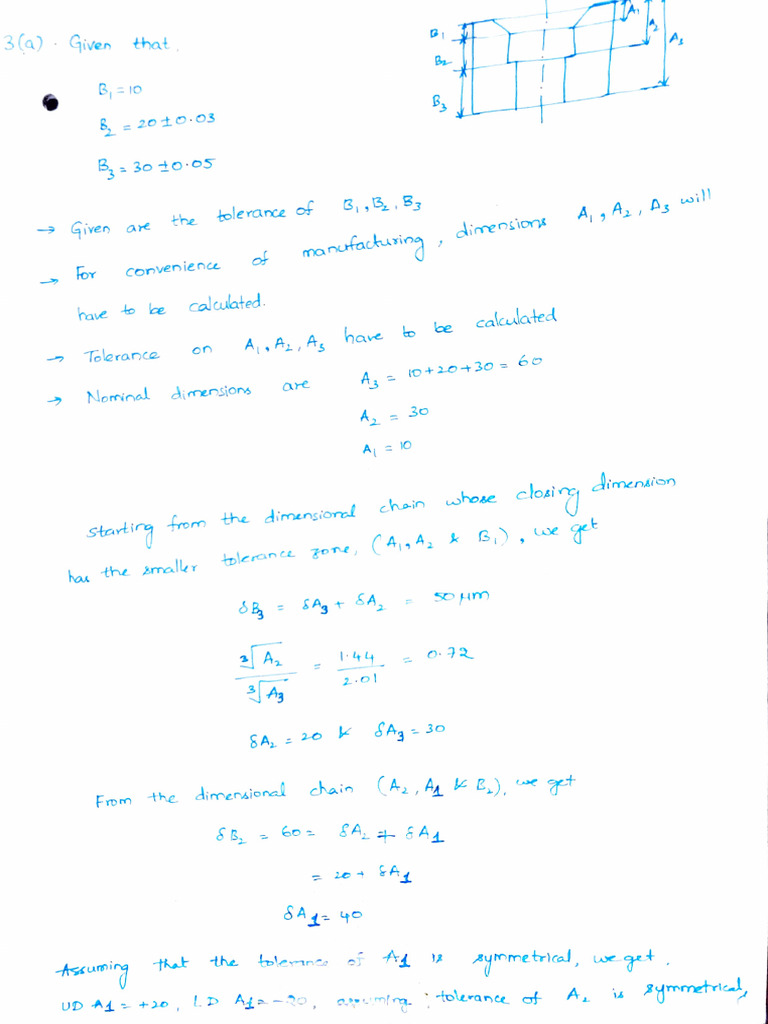 3(a). Given that.
B₁ = 10
B₂ = 20 ± 0.03
B₃ = 30 ± 0.05
B₁
B₂
B₃
A₁
A₂
A₃
→ Given are the tolerance of B₁, B₂, B₃
→ For convenience of manufacturing, dimensions A₁, A₂, A₃ will
have to be calculated.
→ Tolerance on A₁, A₂, A₃ have to be calculated
→ Nominal dimensions are A₃ = 10+20+30 = 60
A₂ = 30
A₁ = 10
starting from the dimensional chain whose closing dimension
has the smaller tolerance zone, (A₁, A₂ & B₁), we get
δB₃ = δA₃ + δA₂ = 50 μm
∛A₂ / ∛A₃ = 1.44 / 2.01 = 0.72
δA₂ = 20 & δA₃ = 30
From the dimensional chain (A₂, A1 & B₂), we get
δB₂ = 60 = δA₂ + δA1
= 20 + δA1
δA1 = 40
Assuming that the tolerance of A1 is symmetrical, we get.
UD A1 = +20, LD A1 = -20, assuming tolerance of A₂ is symmetrical,